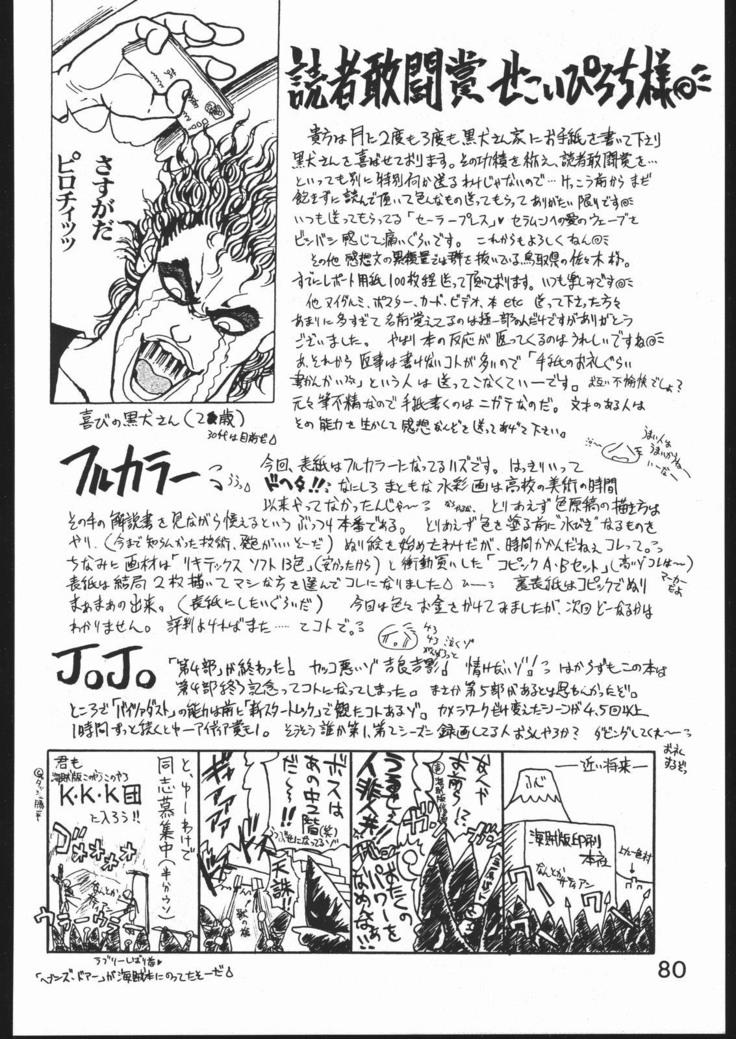 読者敢闘賞 せこいぴろち様
さすがだ
ピロチィッッ
喜びの黒犬さん(2 歳)
30代は目前だ
貴方は月に2度も3度も黒犬さん家にお手紙を書いて下さり
黒犬さんを喜ばせております。その功績を称え、読者敢闘賞を…
といっても別に特別何か送るわけじゃないので… けっこう前から まだ
飽きずに読んで頂いて色んなもの送ってもらって ありがたい限りです
いつも送ってもらってる「セーラープレス」♥ セラムンへの愛のウェーブを
ビンバン感じて痛いぐらいです。 これからもよろしくねん
その他 感想文の 量では群を抜いている鳥取県の佐々木様。
すでにレポート用紙100枚程送って頂いております。いつも楽しみです
他 マイダルミ、ポスター、カード、ビデオ、本 etc 送って下さった方々
あまりに多すぎて名前覚えてるのは極一部なんだけですがありがとう
ございました。 やはり本の反応が返ってくるのはうれしいですね
あ、それから 返事は書けないコトが多いので「手紙のお礼ぐらい
書かんかい」という人は送ってこなくてぃーです。 互い不愉快でしょ?
元々筆不精なので手紙書くのはニガテなのだ。 文才のある人は
その能力を生かして感想などを送ってあげて下さい。
フルカラー
今回、表紙はフルカラーになってるハズです。 はっきりいって
ドヘタ!!。 なにしろ まともな水彩画は高校の美術の時間
以来やってなかったんじゃ〜る とりあえず色原稿の描き方は
その手の解説書を見ながら憶えるという ぶっつけ本番である。 とりあえず色を塗る前に"水びき"なるものを
やり、(今まで知らんかった技術、発色がいいそーだ) ぬり絵を始めたわけだが、時間かかんだねぇコレって。
ちなみに画材は「リキテックス ソフト13色」(安かったから)と衝動買いした「コピックA・Bセット」(高いゾコレは〜)
マーカーだよ
表紙は結局2枚描いてマシな方を選んでコレになりました 裏表紙はコピックでぬり
まあまあの出来。(表紙にしたいぐらいだ) 今回は色々お金をかけてみましたが、次回どーなるかは
わかりません。 評判よければまた…… てコトで。
JoJo
「第4部」が終わった! カッコ悪いゾ 吉良吉影! 情けないゾ! はからずもこの本は
第4部終了記念ってコトになってしまった。 まさか第5部があるとは思もんかったど。
ところで「バイツァダスト」の能力は前に「新スタートレック」で観たコトあるゾ。 カメラワークだけ変えたシーンが4、5回以上
1時間ずっと続くとゆーアイディア賞も1。 そうそう誰か第1、第2シーズン 録画してる人おらんやろか? ダビングしてくれ〜
お礼するぞっ
―近い将来―
ふじ
海賊版印刷
本社
なんとか
サティアン
なんや
お前ら!?
うるせえ
人非人共!
おたくの
パワーを
なめんなぁ!!
ボスは
あの中2階(笑)
だ〜〜!!
天誅!!
ギャアアア
ドドド
と、ゆーわけで
同志募集中(半分ウソ)
君も
海賊版こうがらこのやろ
K・K・K団
に入ろう!!
ゴオオオオ
ウラーウラー
ラブリーしばり首♥
「ヘブンズ・ドアー」が海賊本にのってたそーだ
80